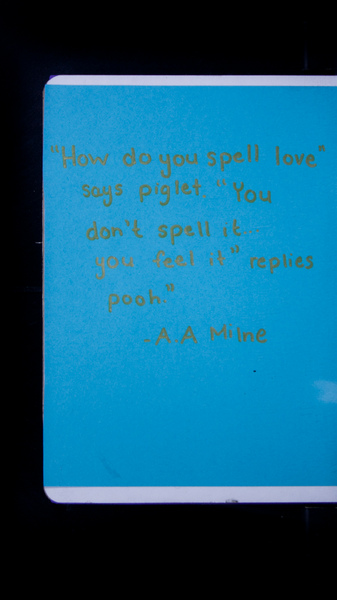 "How do you spell love"
says piglet. "You
don't spell it...
you feel it" replies
pooh."
-A.A Milne